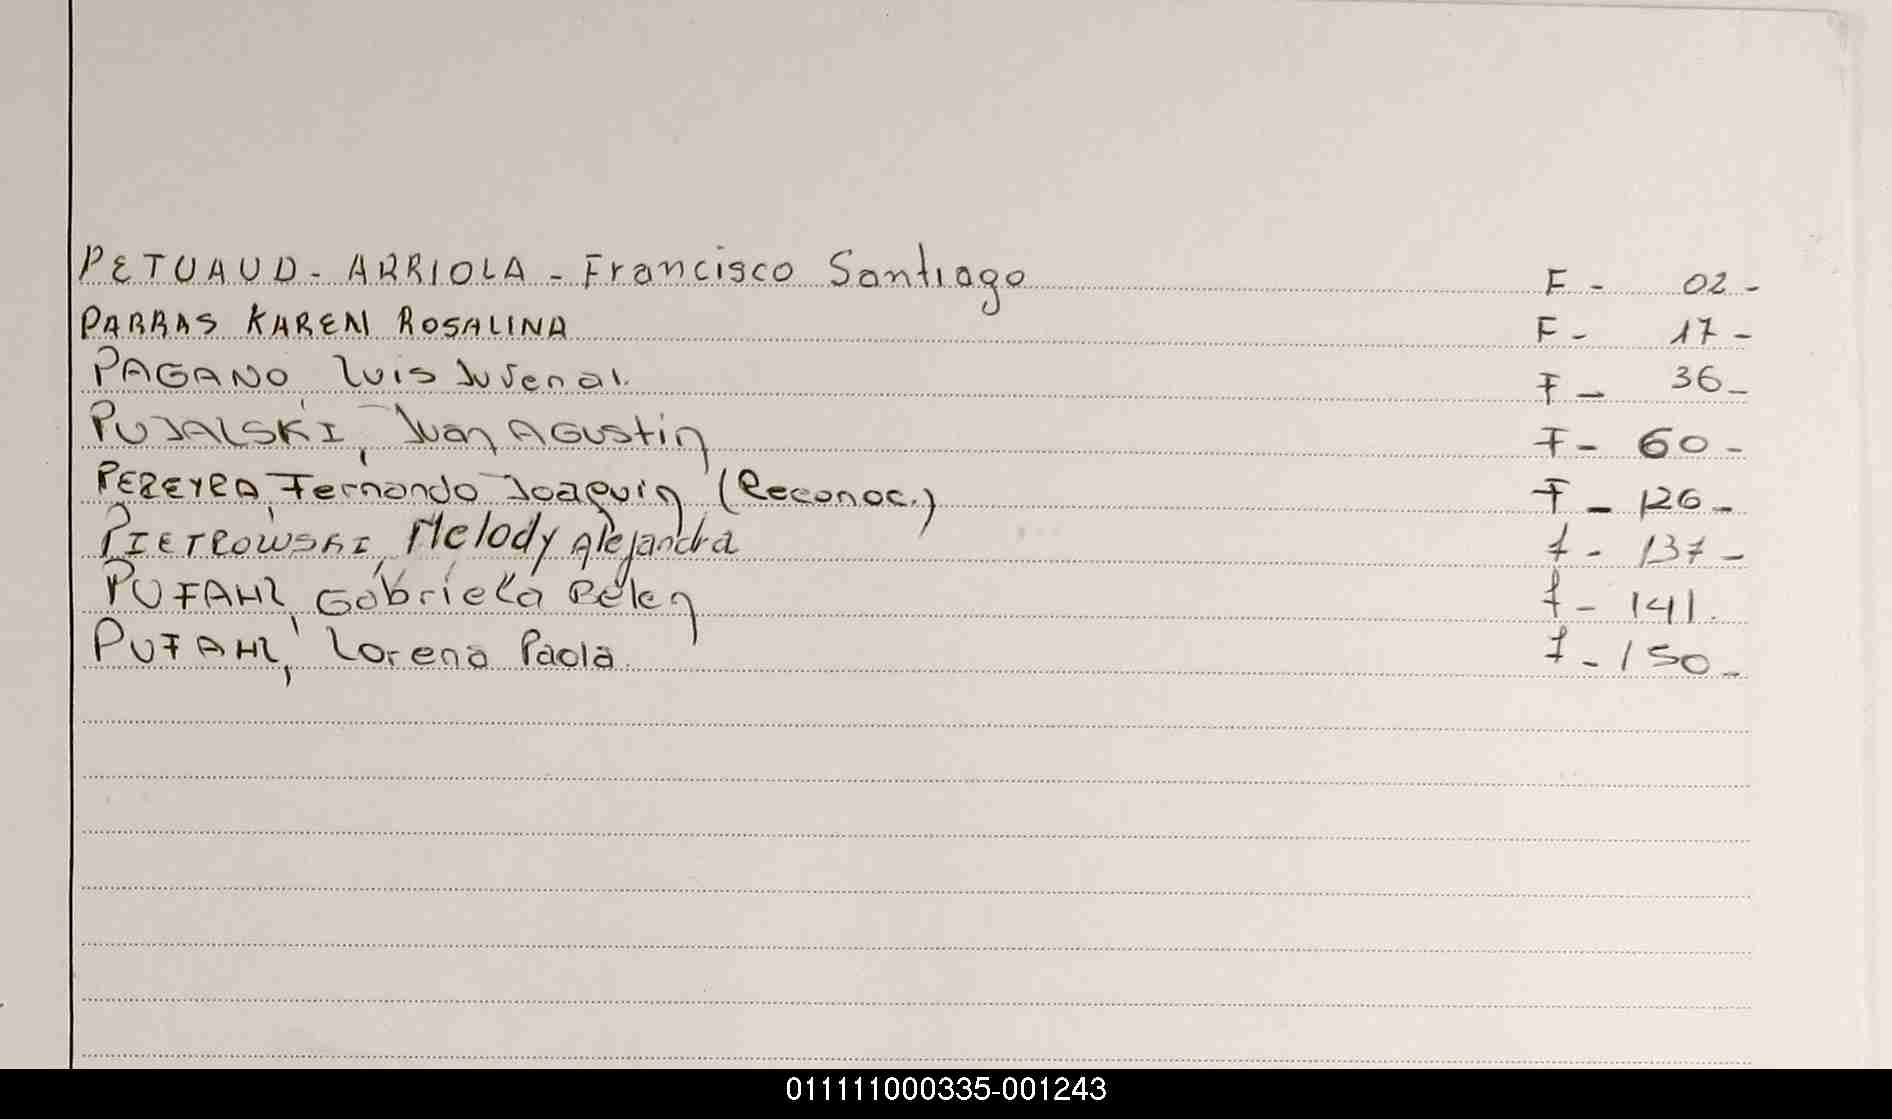 PETUAUD - ARRIOLA - Francisco Santiago F - 02 -
PARRAS KAREN ROSALINA F - 17 -
PAGANO Luis Juvenal. F - 36 -
PUJALSKI, Juan AGUSTIN F - 60 -
PEREYRA, Fernando Joaquin (Reconoc.) F - 126 -
PIETROWSKI, Melody Alejandra f - 137 -
PUFAHL, Gabriela Belen f - 141.
PUFAHL, Lorena Paola. f - 150 -
011111000335-001243